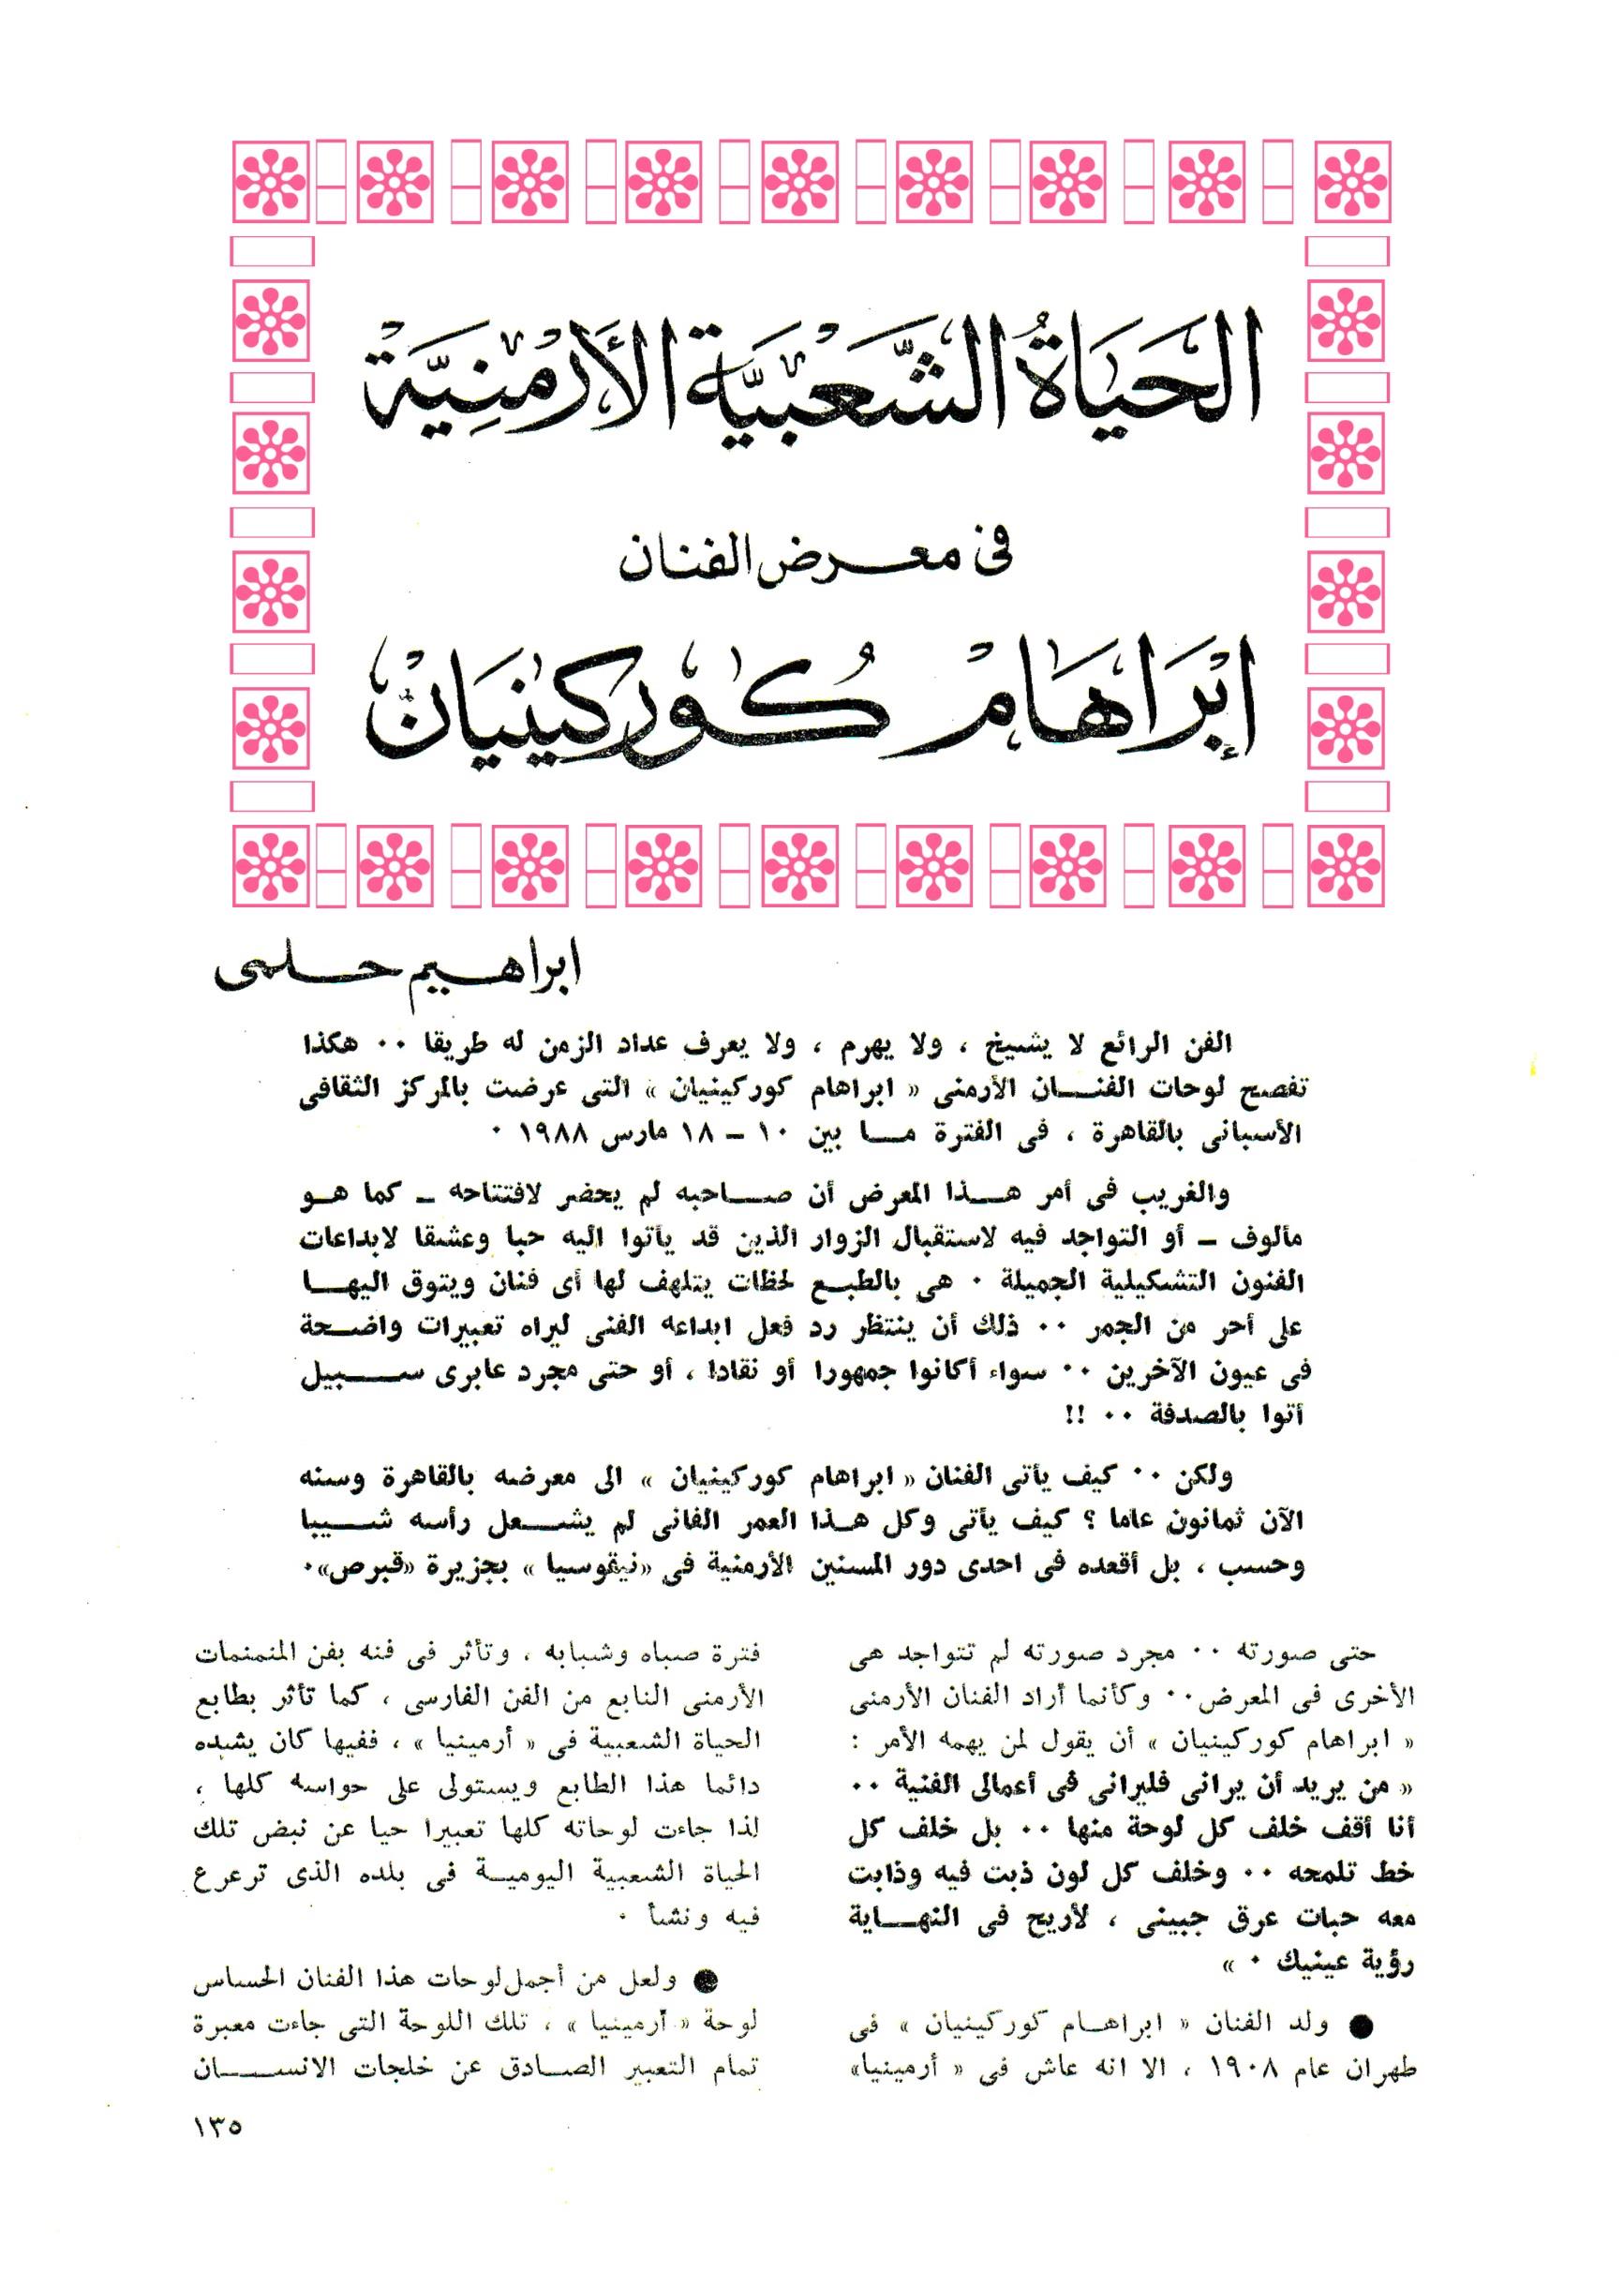 الحَيَاةُ الشَّعْبيَّة الأَرْمِنِيَّة
فى معرض الفنان
إبْرَاهَام كُوركينيَان
ابراهيم حلمى
الفن الرائع لا يشيخ ، ولا يهرم ، ولا يعرف عداد الزمن له طريقا ٠٠ هكذا
تفصح لوحات الفنان الأرمنى « ابراهام كوركينيان » التى عرضت بالمركز الثقافى
الأسبانى بالقاهرة ، فى الفترة ما بين ١٠ – ١٨ مارس ١٩٨٨ ٠
والغريب فى أمر هذا المعرض أن صاحبه لم يحضر لافتتاحه – كما هو
مألوف – أو التواجد فيه لاستقبال الزوار الذين قد يأتوا اليه حبا وعشقا لابداعات
الفنون التشكيلية الجميلة ٠ هى بالطبع لحظات يتلهف لها أى فنان ويتوق اليها
على أحر من الجمر ٠٠ ذلك أن ينتظر رد فعل ابداعه الفنى ليراه تعبيرات واضحة
فى عيون الآخرين ٠٠ سواء أكانوا جمهورا أو نقادا ، أو حتى مجرد عابرى سبيل
أتوا بالصدفة ٠٠ !!
ولكن ٠٠ كيف يأتى الفنان « ابراهام كوركينيان » الى معرضه بالقاهرة وسنه
الآن ثمانون عاما ؟ كيف يأتى وكل هذا العمر الفانى لم يشعل رأسه شيبا
وحسب ، بل أقعده فى احدى دور المسنين الأرمنية فى «نيقوسيا » بجزيرة «قبرص»٠
حتى صورته ٠٠ مجرد صورته لم تتواجد هى
الأخرى فى المعرض٠٠ وكأنما أراد الفنان الأرمنى
« ابراهام كوركينيان » أن يقول لمن يهمه الأمر :
« من يريد أن يرانى فليرانى فى أعمالى الفنية ٠٠
أنا أقف خلف كل لوحة منها ٠٠ بل خلف كل
خط تلمحه ٠٠ وخلف كل لون ذبت فيه وذابت
معه حبات عرق جبينى ، لأريح فى النهاية
رؤية عينيك ٠ »
● ولد الفنان « ابراهام كوركينيان » فى
طهران عام ١٩٠٨ ، الا انه عاش فى « أرمينيا»
فترة صباه وشبابه ، وتأثر فى فنه بفن المنمنمات
الأرمنى النابع من الفن الفارسى ، كما تأثر بطابع
الحياة الشعبية فى « أرمينيا » ، ففيها كان يشده
دائما هذا الطابع ويستولى على حواسه كلها ،
لذا جاءت لوحاته كلها تعبيرا حيا عن نبض تلك
الحياة الشعبية اليومية فى بلده الذى ترعرع
فيه ونشأ ٠
● ولعل من أجمل لوحات هذا الفنان الحساس
لوحة « أرمينيا » ، تلك اللوحة التى جاءت معبرة
تمام التعبير الصادق عن خلجات الانسان
١٣٥